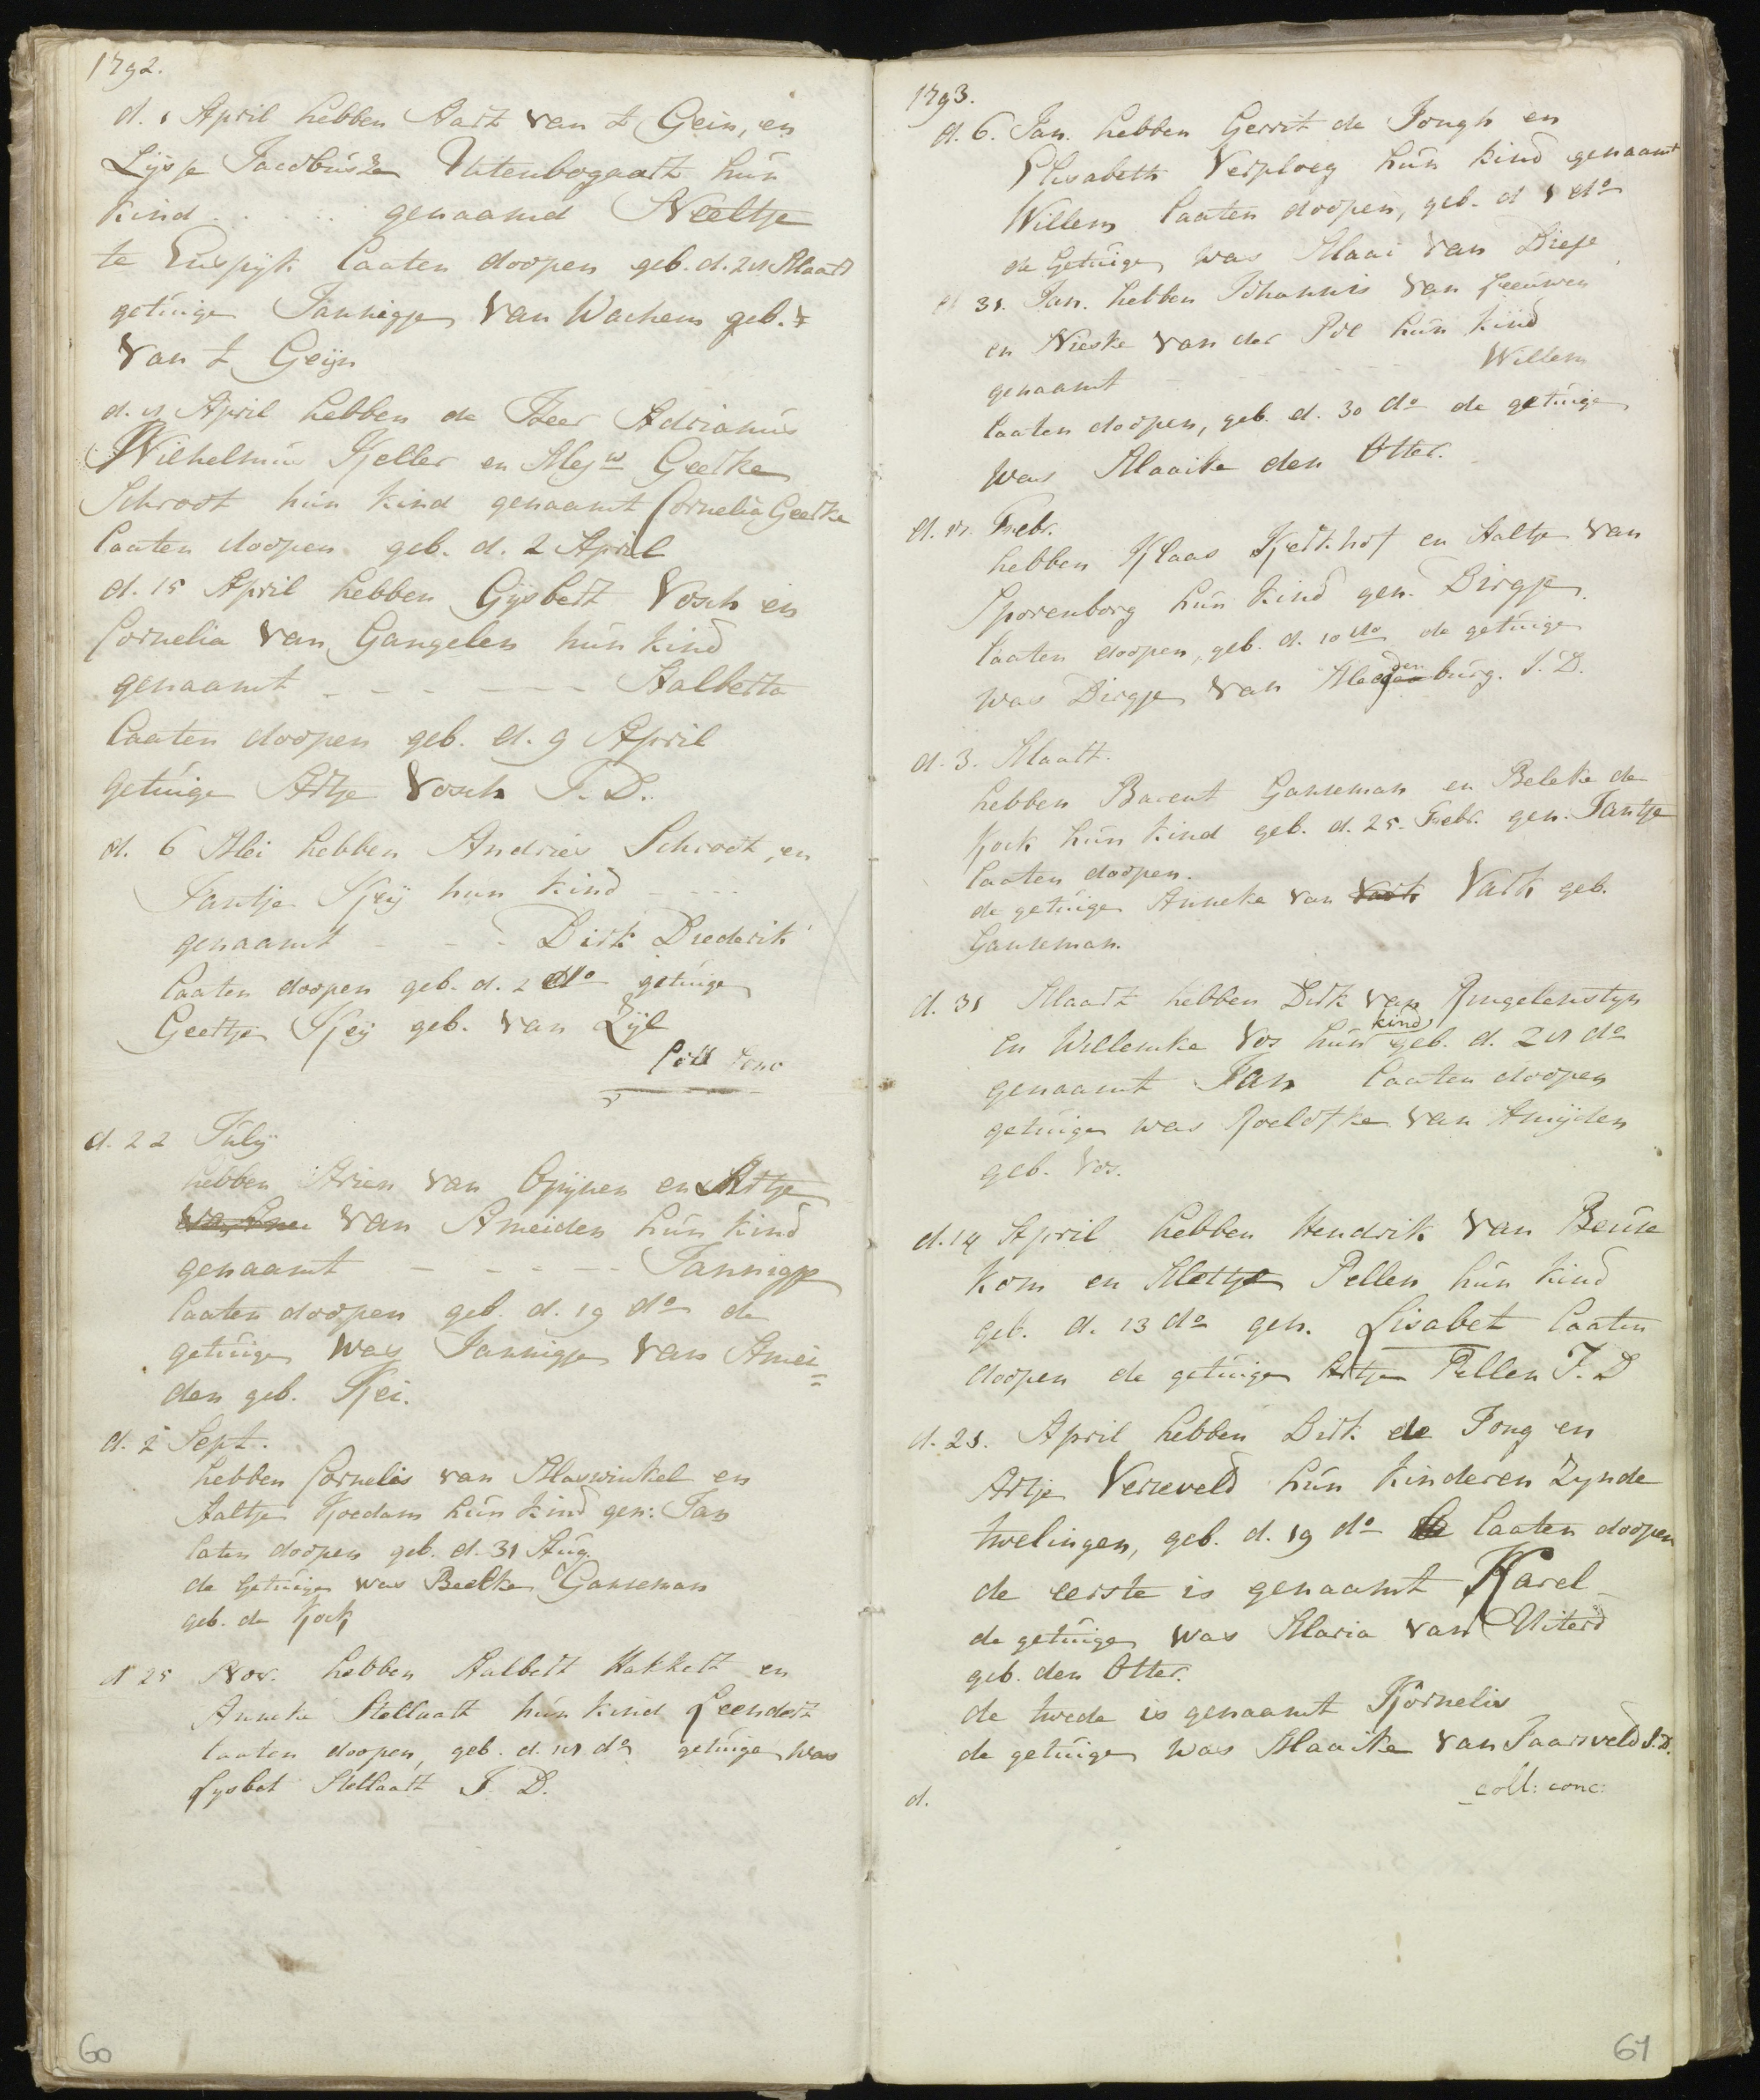 1792.
d. 1 April hebben Aart van t Gein, en
Lijsje Jacobusze Uitenbogaart hun
kind . . . . . genaamd Neeltje
te Enspijk laaten doopen geb. d. 21 Maart
getuige Jannigje van Wachem geb.
van t Geijn
d. 11 April hebben de Heer Adrianus
Wilhelmus Keller en Mejw Geerke
Schroot hun kind genaamt Cornelia Geerke
laaten doopen geb. d. 2 April
d. 15 April hebben Gijsbert Vosch en
Cornelia van Gangelen hun kind
genaamt - - - - - - Aalberta
laaten doopen geb. d. 9 April
getuige Artje Vosch J. D.
d. 6 Mei hebben Andries Schroot, en
Jantje Keij hun kind - - - -
genaamt - - - Dirk Diederik
laaten doopen geb. d. 2 do getuige
Geertje Keij geb. van Zijl
Coll Conc
d. 22 July
hebben Arien van Opijnen en Artje
van Ameiden hun kind
genaamt - - - - - Jannigje
laaten doopen geb. d. 19 do de
getuige was Jannigje van Amei=
den geb. Kei.
d. 2 Sept.
hebben Cornelis van Maswinkel en
Aaltje Koedam hun kind gen: Jan
laten doopen geb. d. 31 Aug.
de getuige was Beelke Ganseman
geb. de Kock
d 25 Nov. hebben Aalbert Hakkert en
Anneke Stellaart hun kind Leendert
laaten doopen, geb. d. 21 do getuige was
Lysbet Stellaart J. D.
60
1793.
d. 6. Jan. hebben Gerrit de Jongh en
Elisabeth Verploeg hun kind genaamt
Willem laaten doopen, geb. d 1 do
de Getuige was Maai van Diese
d 31. Jan. hebben Johannis van Leeuwen
en Nieske van der Pol hun kind
genaamt - - - - - - Willem
laaten doopen, geb. d. 30 do de getuige
was Maaike den Otter.
d. 11. Febr.
hebben Klaas Kerkhof en Aaltje van
Sporenborg hun kind gen. Dirgje
laaten doopen, geb. d. 10 do de getuige
was Dirgje van Magdenburg. J. D.
d. 3. Maart.
hebben Barent Ganseman en Beleke de
Kock hun kind geb. d. 25. Febr. gen. Jantje
laaten doopen.
de getuige Anneke van Vark Vark geb.
Ganseman.
d. 31 Maart hebben Dirk van Ringelenstyn
en Willemke Vos hun kind geb. d. 21 do
genaamt Jan laaten doopen
getuige was Roelofke van Amijden
geb. Vos.
d. 14 April hebben Hendrik van Beuse
kom en Mettje Pellen hun kind
geb. d. 13 do gen. Lisabet laaten
doopen de getuige Artje Pellen J. D
d. 21. April hebben Dirk de Jong en
Artje Verreveld hun kinderen zynde
twelingen, geb. d. 19 do laaten doopen
de eerste is genaamt Karel
de getuige was Maria van Uiterd
geb. den Otter.
de twede is genaamt Kornelis
de getuige was Maaike van Jaarsveld J. D.
coll: conc:
d.
61